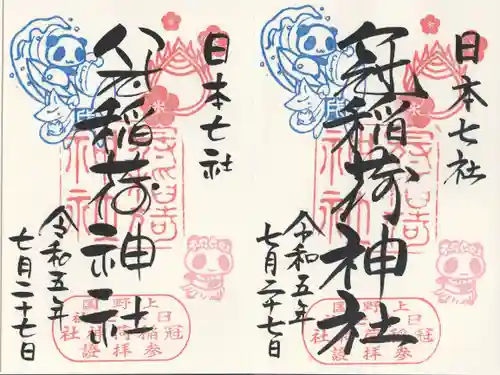 日本七社
冠稲荷神社
令和五年
七月二十七日
上野国
冠稲荷神社
参拝證
日本七社
冠稲荷神社
令和五年
七月二十七日
上野国
冠稲荷神社
参拝證